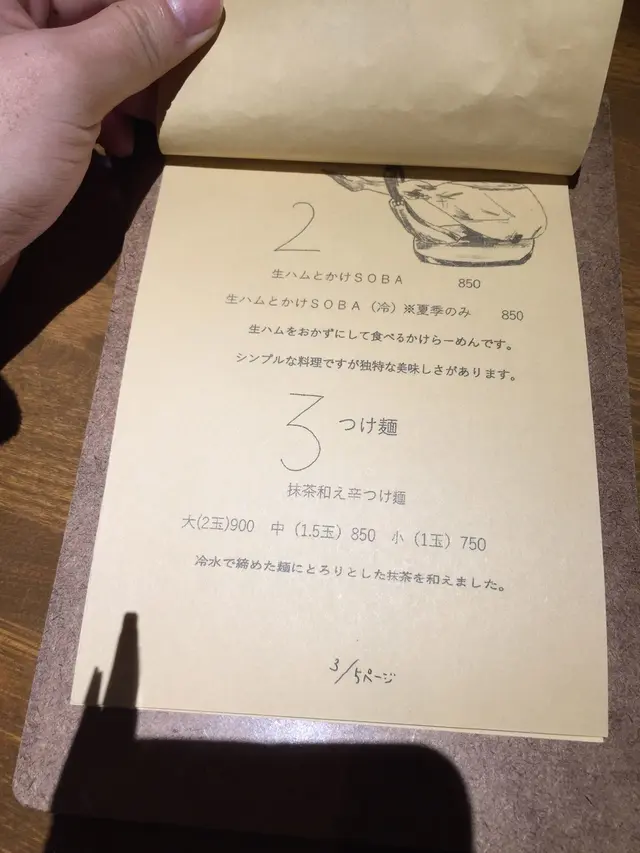 2
生ハムとかけSOBA 850
生ハムとかけSOBA（冷）※夏季のみ 850
生ハムをおかずにして食べるかけらーめんです。
シンプルな料理ですが独特な美味しさがあります。
3 つけ麺
抹茶和え辛つけ麺
大(2玉)900 中（1.5玉）850 小（1玉）750
冷水で締めた麺にとろりとした抹茶を和えました。
3/5ページ